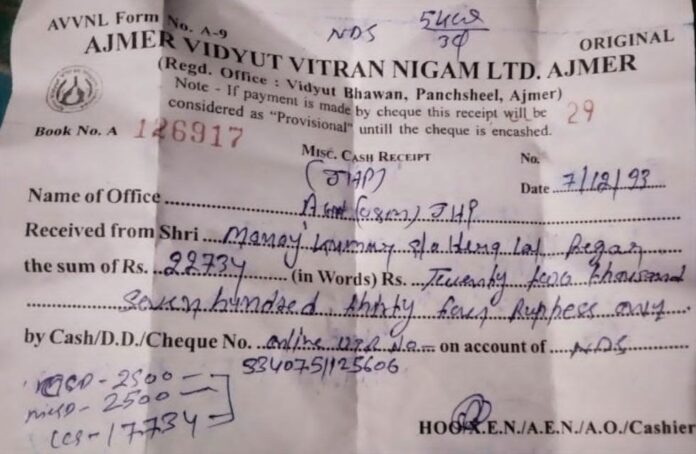 AVVNL Form No. A-9
NDS
ORIGINAL
AJMER VIDYUT VITRAN NIGAM LTD. AJMER
(Regd. Office : Vidyut Bhawan, Panchsheel, Ajmer)
Note - If payment is made by cheque this receipt will be
considered as "Provisional" untill the cheque is encashed.
29
Book No. A 126917
MISC. CASH RECEIPT
No.
(JHP)
Date 7/12/93
Name of Office (O&M) JHP
Received from Shri Manoj Kumar S/o Lal Regar
the sum of Rs. 22734 (in Words) Rs. Twenty two thousand
Seven hundred thirty four Ruppess only
by Cash/D.D./Cheque No. online No. on account of NDS
3340751125606
- 2500
- 2500
- 17734
HOO/X.E.N./A.E.N./A.O./Cashier